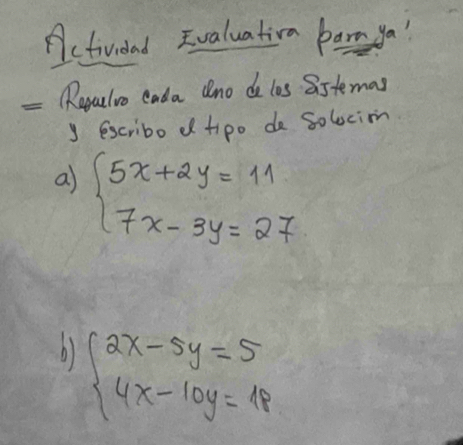 Actividad Evaluativa para ya!
= Resuelvo cada uno de los Sistemas
y Escribo el tipo de Solución.
a) { 5x + 2y = 11
7x - 3y = 27
b) { 2x - 5y = 5
4x - 10y = 18